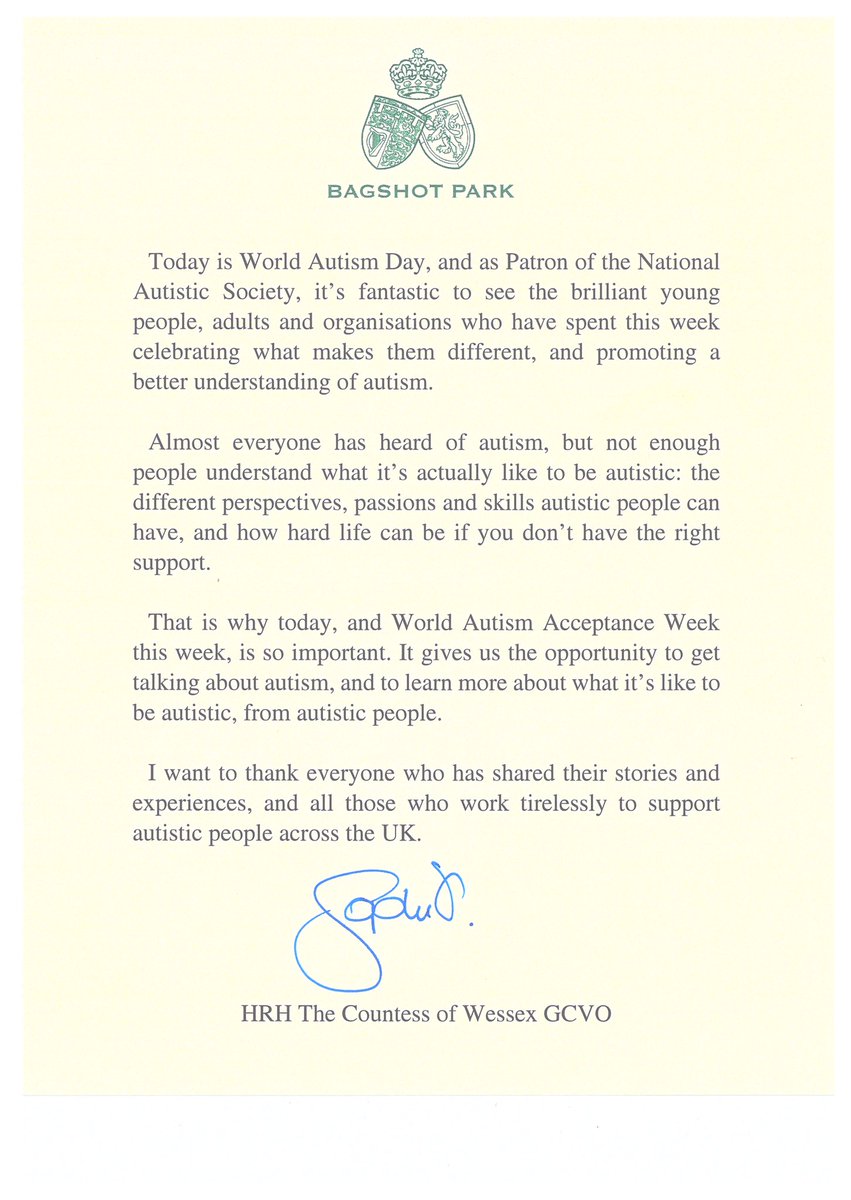 BAGSHOT PARK
Today is World Autism Day, and as Patron of the National
Autistic Society, it's fantastic to see the brilliant young
people, adults and organisations who have spent this week
celebrating what makes them different, and promoting a
better understanding of autism.
Almost everyone has heard of autism, but not enough
people understand what it's actually like to be autistic: the
different perspectives, passions and skills autistic people can
have, and how hard life can be if you don't have the right
support.
That is why today, and World Autism Acceptance Week
this week, is so important. It gives us the opportunity to get
talking about autism, and to learn more about what it's like to
be autistic, from autistic people.
I want to thank everyone who has shared their stories and
experiences, and all those who work tirelessly to support
autistic people across the UK.
Sophie
HRH The Countess of Wessex GCVO